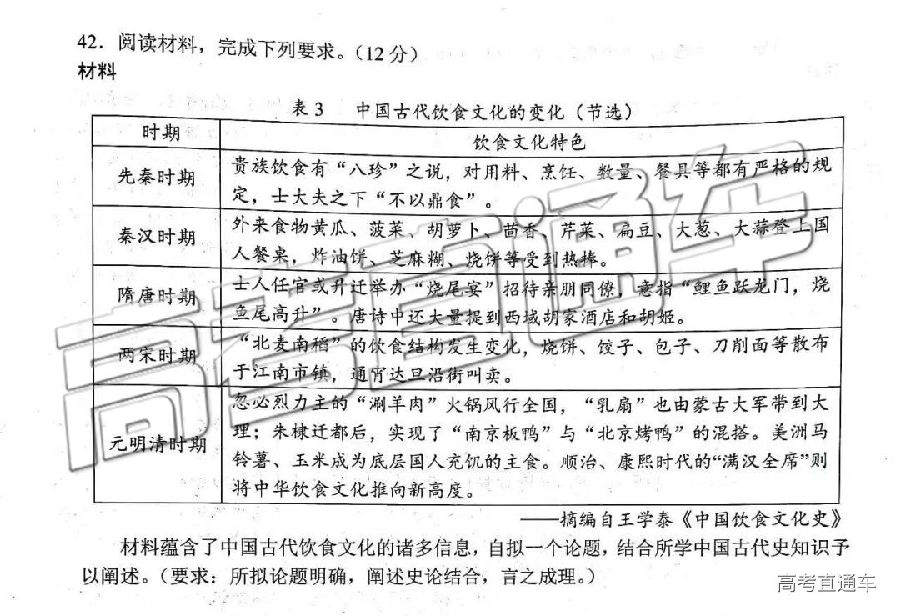 42．阅读材料，完成下列要求。（12分）
材料
表3 中国古代饮食文化的变化（节选）
时期 饮食文化特色
先秦时期
贵族饮食有“八珍”之说，对用料、烹饪、数量、餐具等都有严格的规
定，士大夫之下“不以鼎食”。
秦汉时期
外来食物黄瓜、菠菜、胡萝卜、茴香、芹菜、扁豆、大葱、大蒜登上国
人餐桌，炸油饼、芝麻糊、烧饼等受到热捧。
隋唐时期
士人任官或升迁举办“烧尾宴”招待亲朋同僚，意指“鲤鱼跃龙门，烧
鱼尾高升”。唐诗中还大量提到西域胡家酒店和胡姬。
两宋时期
“北麦南稻”的饮食结构发生变化，烧饼、饺子、包子、刀削面等散布
于江南市镇，通宵达旦沿街叫卖。
元明清时期
忽必烈力主的“涮羊肉”火锅风行全国，“乳扇”也由蒙古大军带到大
理；朱棣迁都后，实现了“南京板鸭”与“北京烤鸭”的混搭。美洲马
铃薯、玉米成为底层国人充饥的主食。顺治、康熙时代的“满汉全席”则
将中华饮食文化推向新高度。
——摘编自王学泰《中国饮食文化史》
材料蕴含了中国古代饮食文化的诸多信息，自拟一个论题，结合所学中国古代史知识予
以阐述。（要求：所拟论题明确，阐述史论结合，言之成理。）
高考直通车
高考直通车